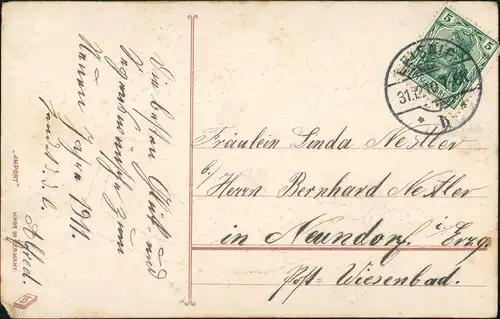 Die besten Glück- und
Segenswünsche zum
Neuen Jahre 1911.
sendet d. l.
Alfred.
"IMPORT"
MADE IN GERMANY.
5 5
LEIPZIG
31.12.
* 2 *
b
Fräulein Linda Nestler
b/ Herrn Bernhard Nestler
in Neundorf. i. Erzg.
Post-Wiesenbad.